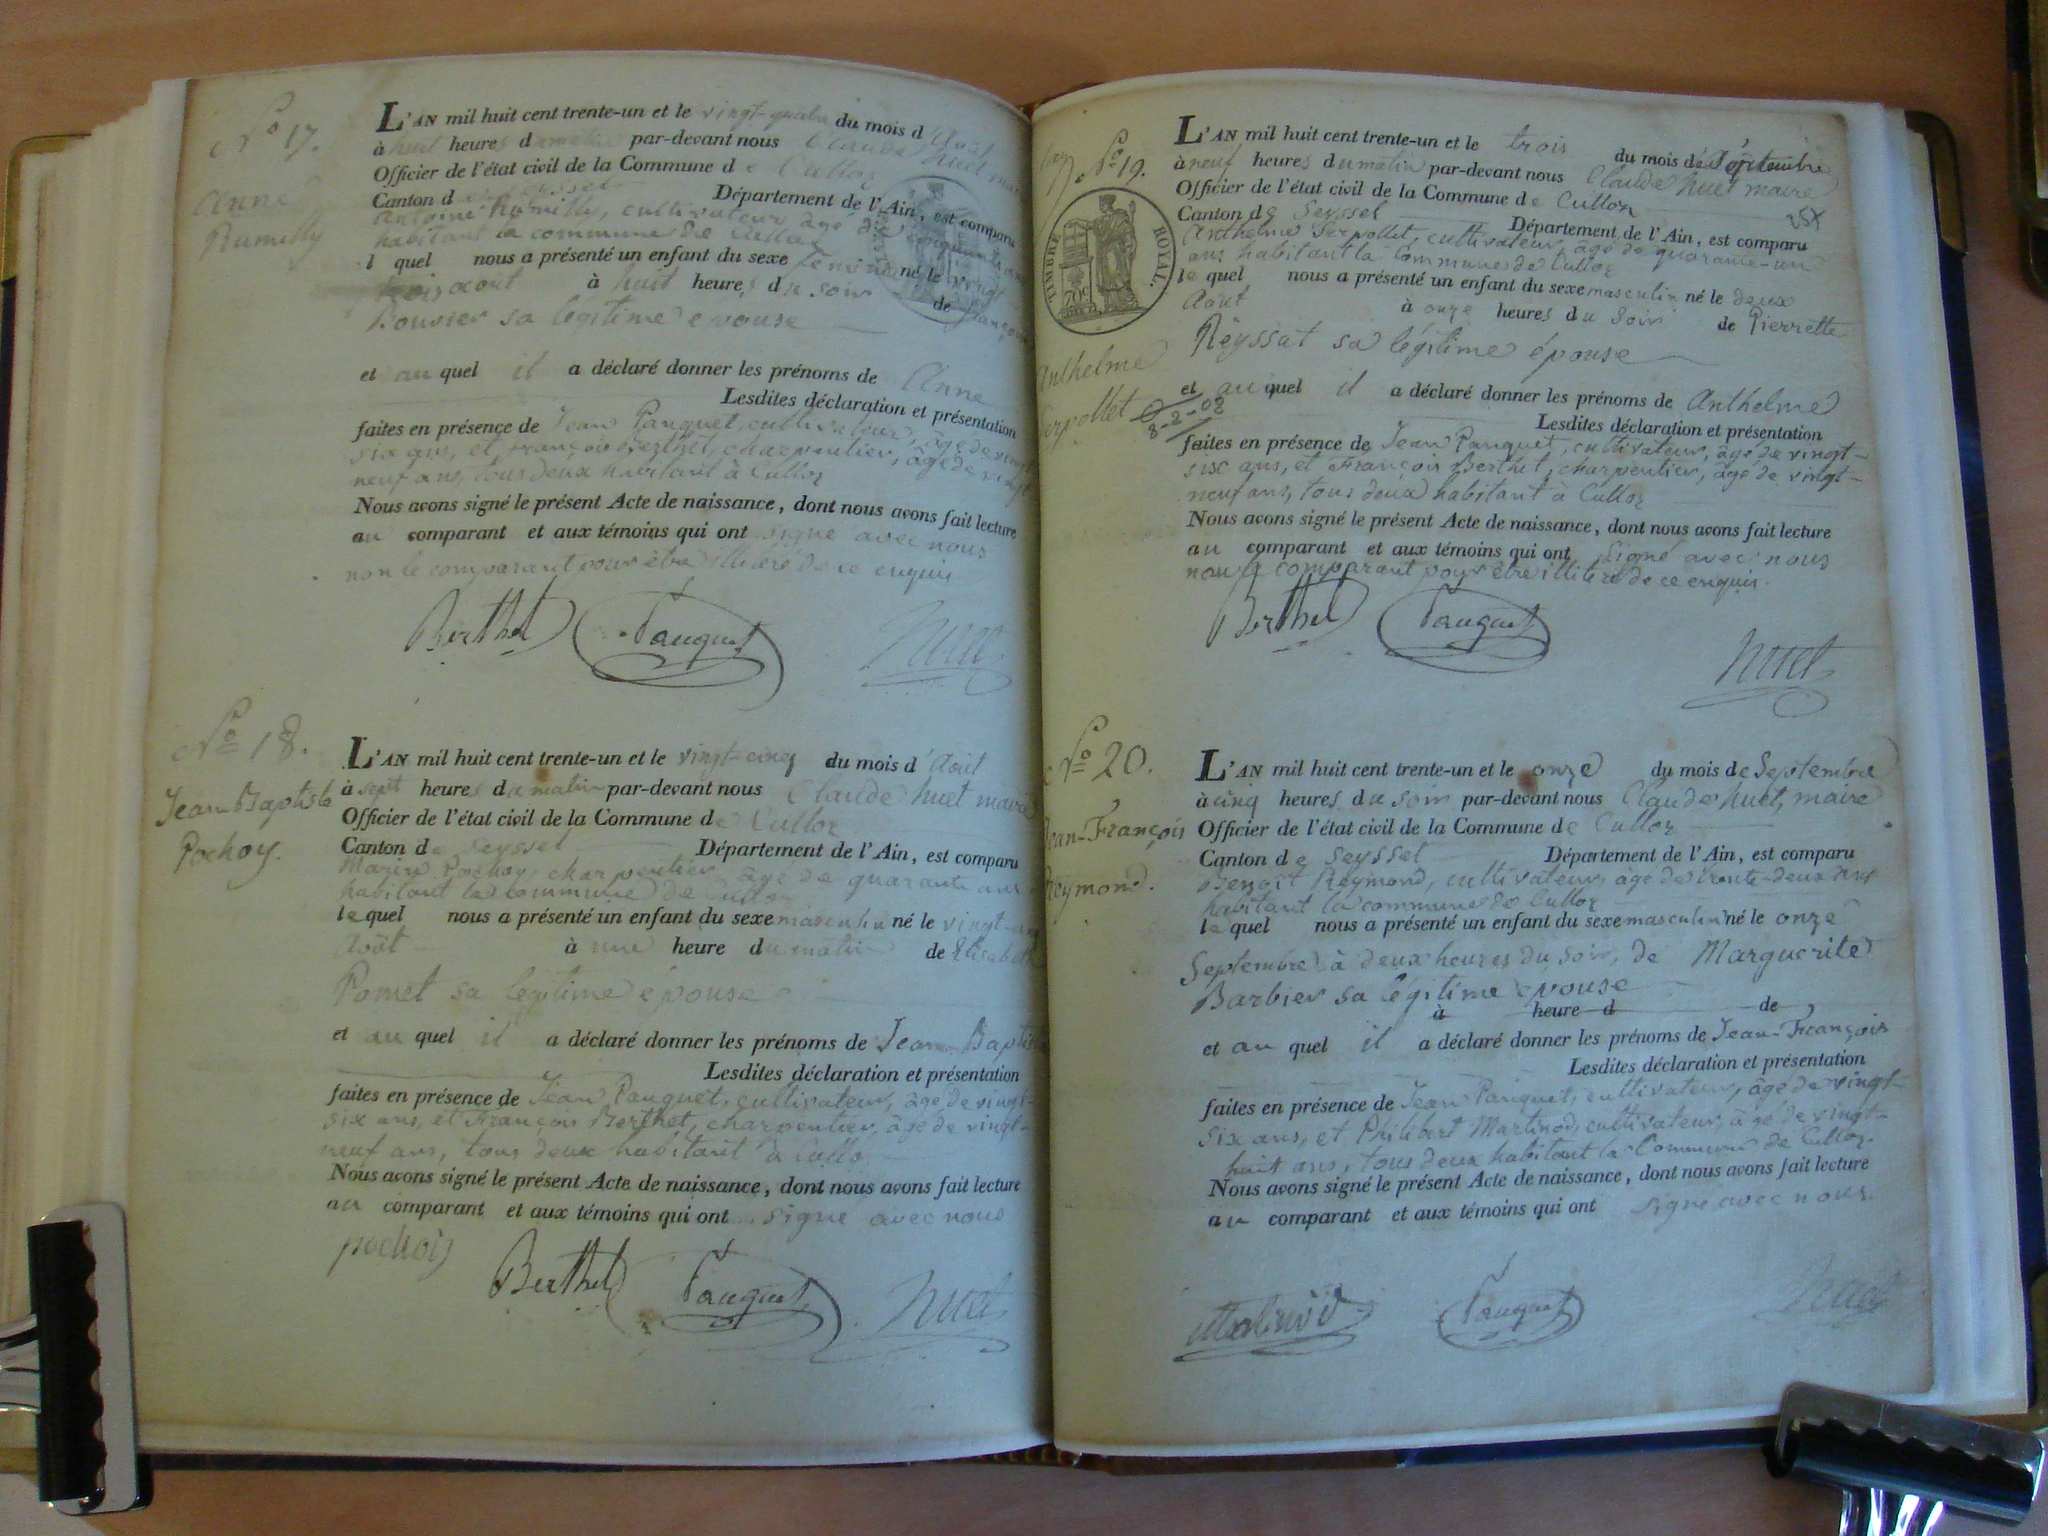 No 17.
Anne
Rumilly
L'AN mil huit cent trente-un et le vingt-quatre du mois d'Août
à huit heures du matin par-devant nous Claude Huet maire
Officier de l'état civil de la Commune de Culloz
Canton de Seyssel Département de l'Ain, est comparu
Antoine Rumilly, cultivateur âgé de cinquante
habitant la commune de Culloz
lequel nous a présenté un enfant du sexe féminin né le vingt
trois aout à huit heures du soir de Françoise
Bouvier sa légitime épouse
et au quel il a déclaré donner les prénoms de Anne
Lesdites déclaration et présentation
faites en présence de Jean Pauquet, cultivateur, âgé de vingt
six ans, et François Berthet, charpentier, âgé de vingt
neuf ans, tous deux habitant à Culloz
Nous avons signé le présent Acte de naissance, dont nous avons fait lecture
au comparant et aux témoins qui ont signé avec nous
non le comparant pour être illitéré de ce enquis
Berthet Pauquet Huet
No 18.
Jean-Baptiste
Pochoy.
L'AN mil huit cent trente-un et le vingt-cinq du mois d'Août
à sept heures du matin par-devant nous Claude Huet maire
Officier de l'état civil de la Commune de Culloz
Canton de Seyssel Département de l'Ain, est comparu
Marin Pochoy, charpentier, âgé de quarante ans
habitant la commune de Culloz
lequel nous a présenté un enfant du sexe masculin né le vingt-cinq
Août à une heure du matin de Elisabeth
Pomet sa légitime épouse
et au quel il a déclaré donner les prénoms de Jean-Baptiste
Lesdites déclaration et présentation
faites en présence de Jean Pauquet, cultivateur, âgé de vingt-
six ans, et François Berthet, charpentier, âgé de vingt-
neuf ans, tous deux habitant à Culloz
Nous avons signé le présent Acte de naissance, dont nous avons fait lecture
au comparant et aux témoins qui ont signé avec nous
pochois
Berthet Pauquet Huet
No 19.
TIMBRE ROYAL.
70c
Anthelme
Serpollet
8-2-02
L'AN mil huit cent trente-un et le trois du mois de Septembre
à neuf heures du matin par-devant nous Claude Huet maire
Officier de l'état civil de la Commune de Culloz
Canton de Seyssel Département de l'Ain, est comparu
Anthelme Serpollet, cultivateur, âgé de quarante-un
ans habitant la Commune de Culloz
le quel nous a présenté un enfant du sexe masculin né le deux
Août à onze heures du soir de Pierrette
Reyssat sa légitime épouse
et au quel il a déclaré donner les prénoms de Anthelme
Lesdites déclaration et présentation
faites en présence de Jean Pauquet, cultivateur, âgé de vingt-
six ans, et François Berthet, charpentier, âgé de vingt-
neuf ans, tous deux habitant à Culloz
Nous avons signé le présent Acte de naissance, dont nous avons fait lecture
au comparant et aux témoins qui ont signé avec nous
non le comparant pour être illitéré de ce enquis.
Berthet Pauquet
Huet
No 20.
Jean-François
Reymond.
L'AN mil huit cent trente-un et le onze du mois de Septembre
à cinq heures du soir par-devant nous Claude Huet, maire
Officier de l'état civil de la Commune de Culloz
Canton de Seyssel Département de l'Ain, est comparu
Benoît Reymond, cultivateur, âgé de trente-deux ans
habitant la commune de Culloz
le quel nous a présenté un enfant du sexe masculin né le onze
Septembre à deux heures du soir, de Marguerite
Barbier sa légitime épouse
à heure d de
et au quel il a déclaré donner les prénoms de Jean-François
Lesdites déclaration et présentation
faites en présence de Jean Pauquet, cultivateur, âgé de vingt-
six ans, et Philibert Martinod, cultivateur, âgé de vingt-
huit ans, tous deux habitant la Commune de Culloz.
Nous avons signé le présent Acte de naissance, dont nous avons fait lecture
au comparant et aux témoins qui ont signé avec nous.
Martinod Pauquet Huet